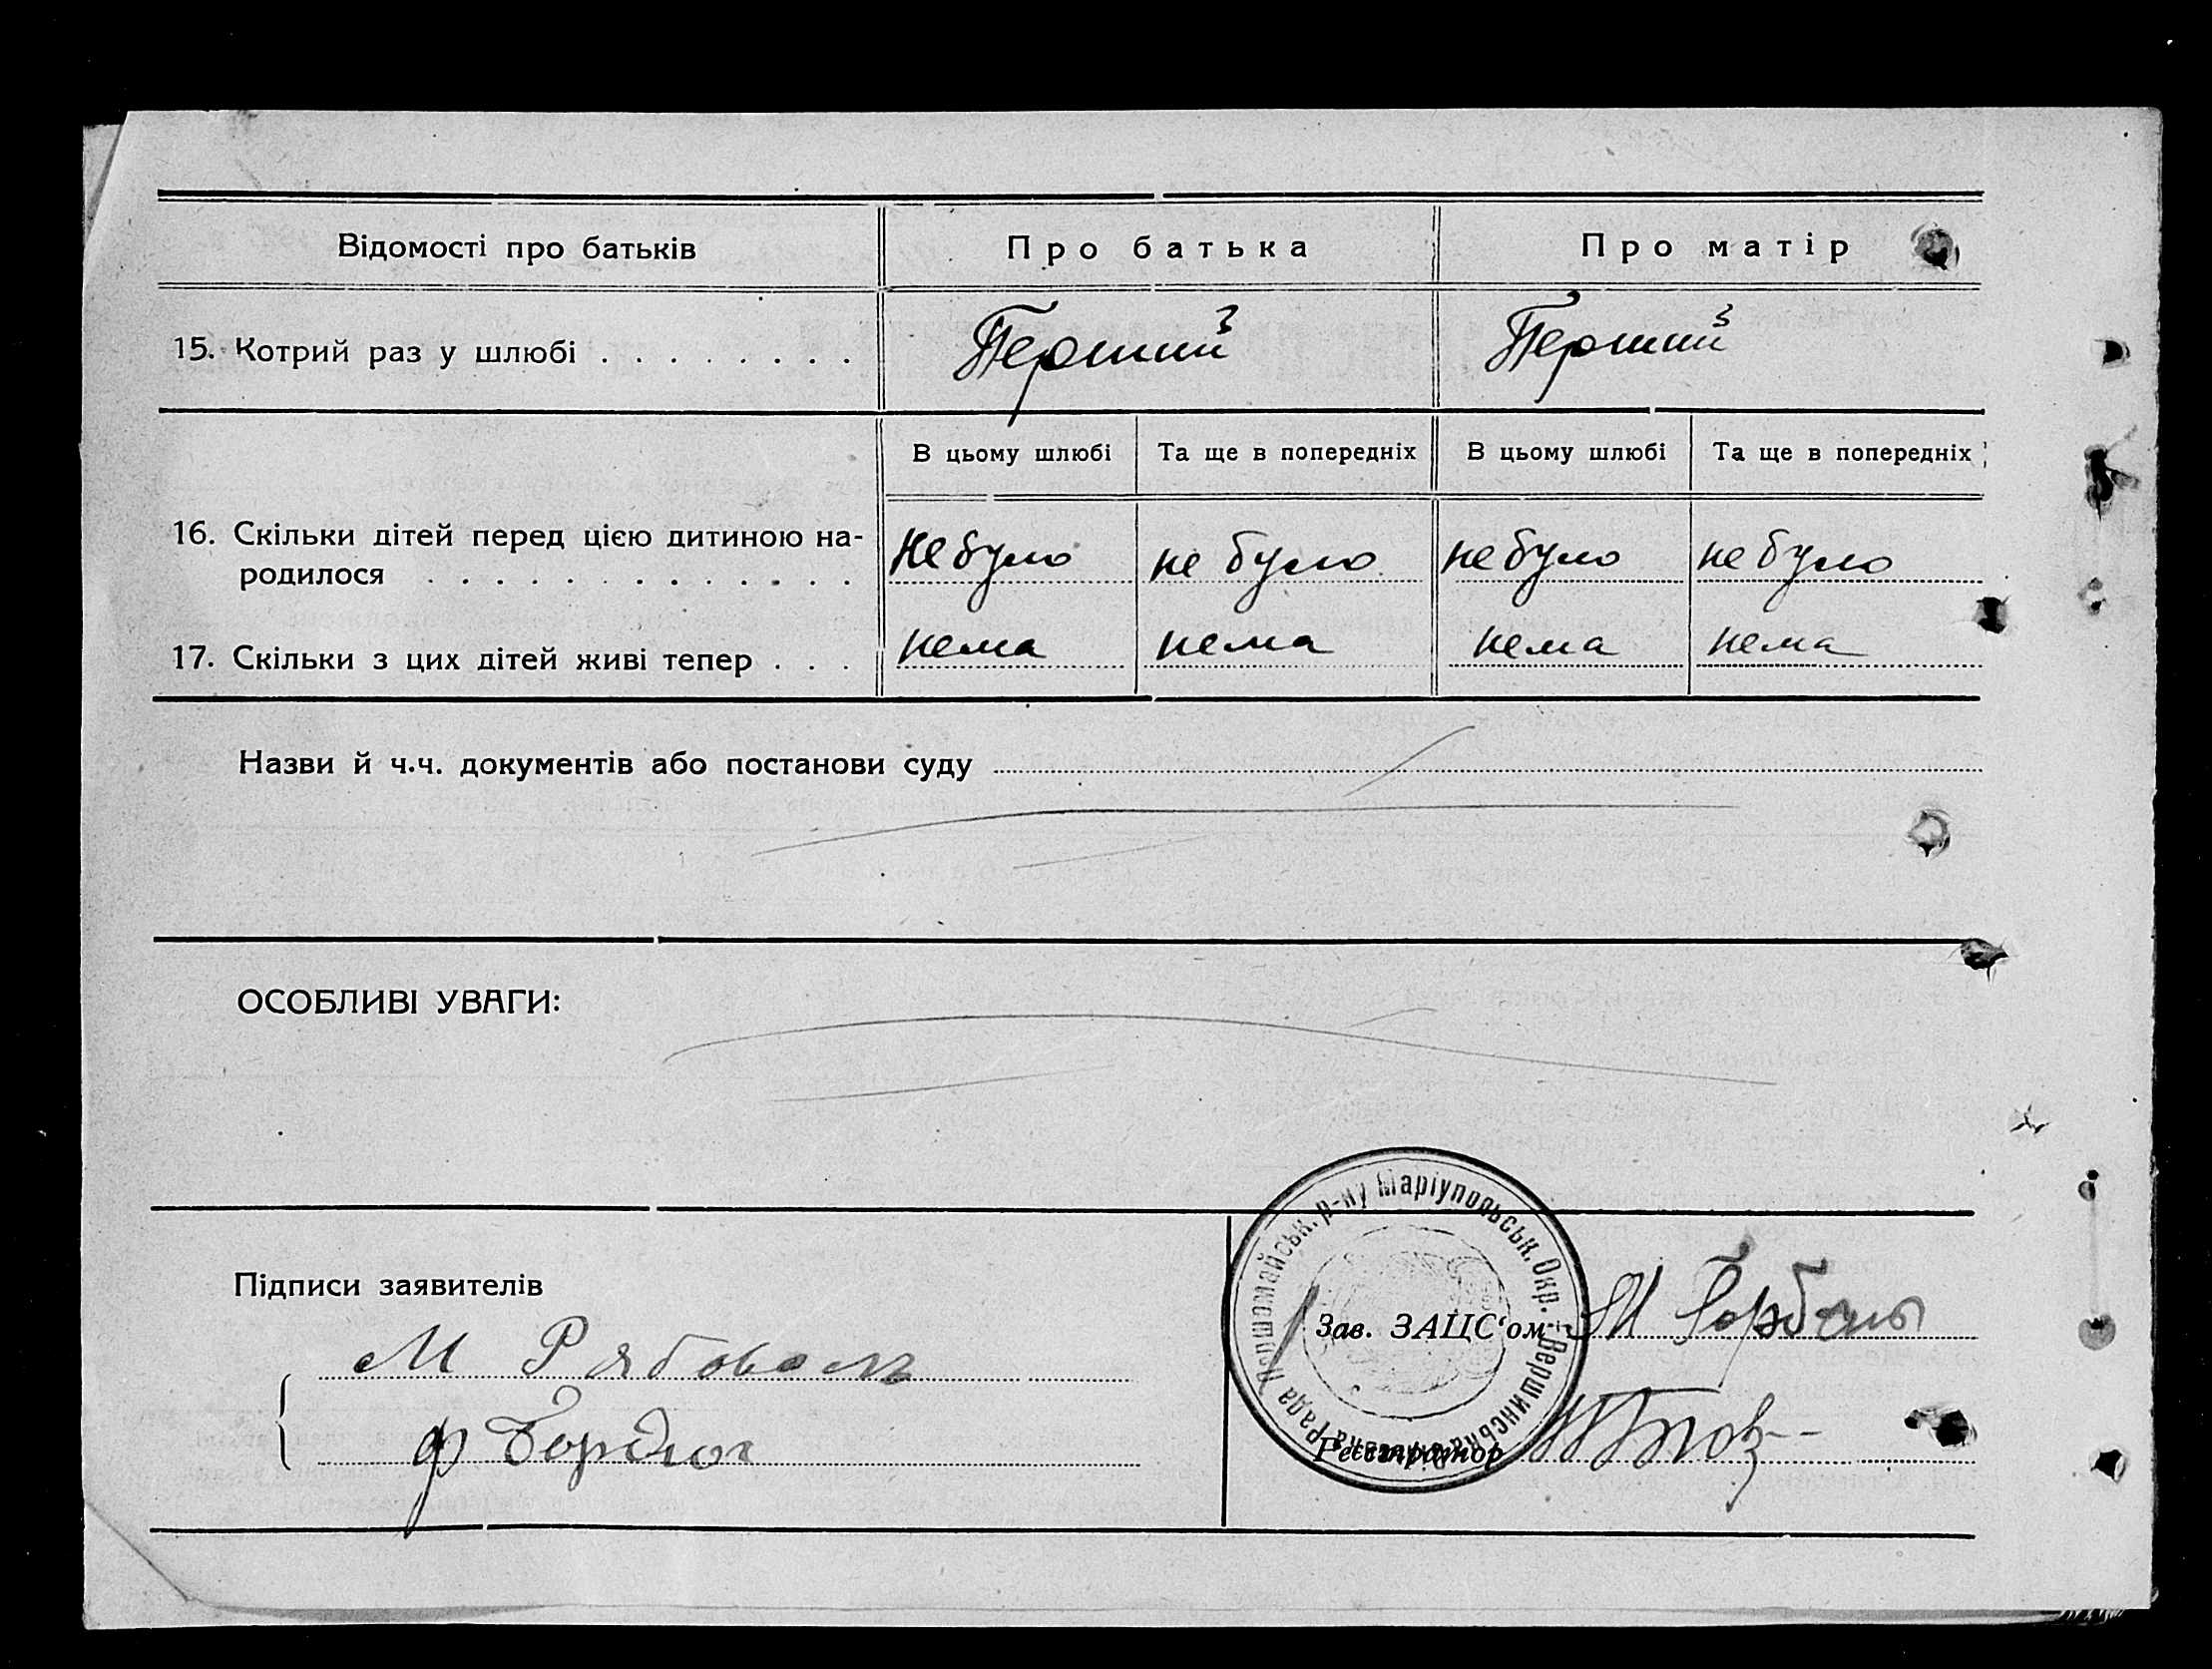 Відомості про батьків Про батька Про матір
15. Котрий раз у шлюбі . . . . . . . . Перший Перший
В цьому шлюбі Та ще в попередніх В цьому шлюбі Та ще в попередніх
16. Скільки дітей перед цією дитиною на-
родилося . . . . . . . . . . . . . Не було не було не було не було
17. Скільки з цих дітей живі тепер . . . нема нема нема нема
Назви й ч.ч. документів або постанови суду
ОСОБЛИВІ УВАГИ:
Першомайськ. р-ну Маріупольськ. Окр. Вершинська рада
Підписи заявителів
Зав. ЗАЦС'ом М Горбань
М Рябовол
ф
Реєстратор